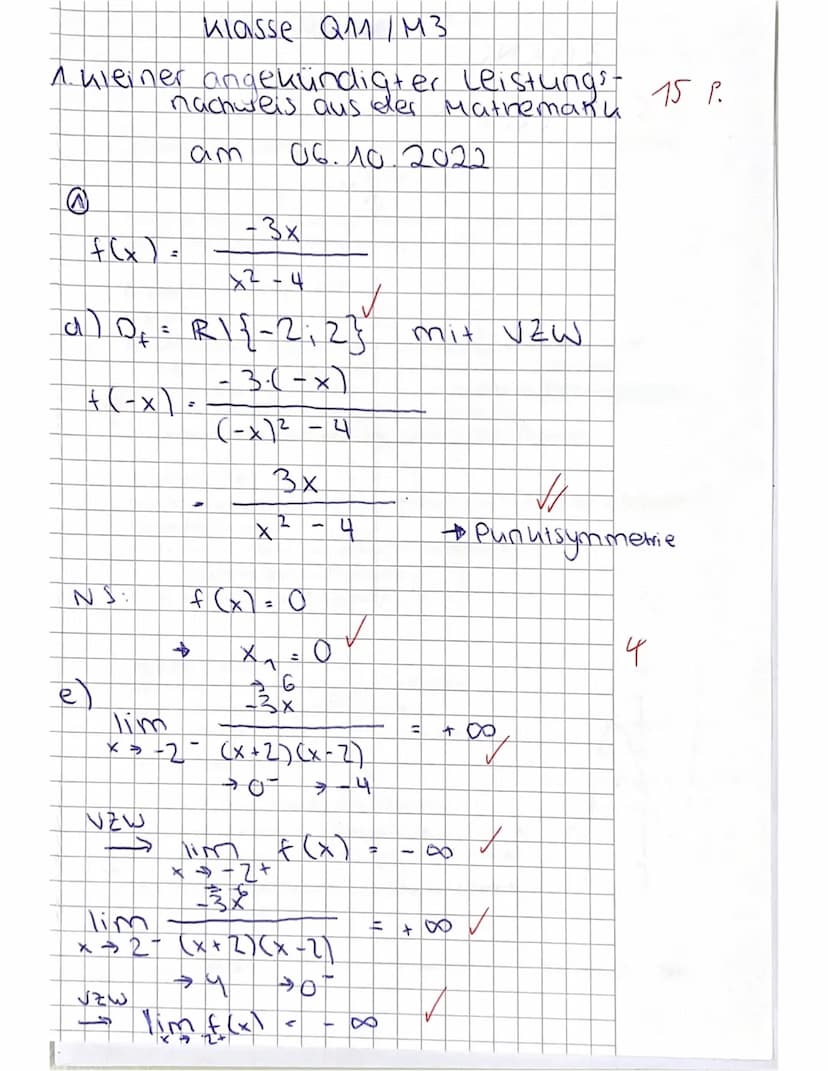 Klasse Q11/M3
1. kleiner angekündigter Leistungs-
nachweis aus der Mathematik
15 P.
am 06.10.2022
①
f(x) = -3x / x² - 4
a) Df = ℝ\{-2; 2} ✓ mit VZW
f(-x) = -3·(-x) / (-x)² - 4
= 3x / x² - 4 → Punktsymmetrie ✓✓
NS: f(x) = 0
→ x₁ = 0 ✓
4
→ 6
e) lim x→-2⁻ -3x / (x+2)(x-2) = +∞ ✓
→ 0⁻ → -4
VZW
⟶ lim x→-2+ f(x) = -∞ ✓
lim x→2⁻ -3x / (x+2)(x-2) = +∞ ✓
→ 4 → 0⁻
VZW
⟶ lim x→2+ f(x) = -∞ ✓